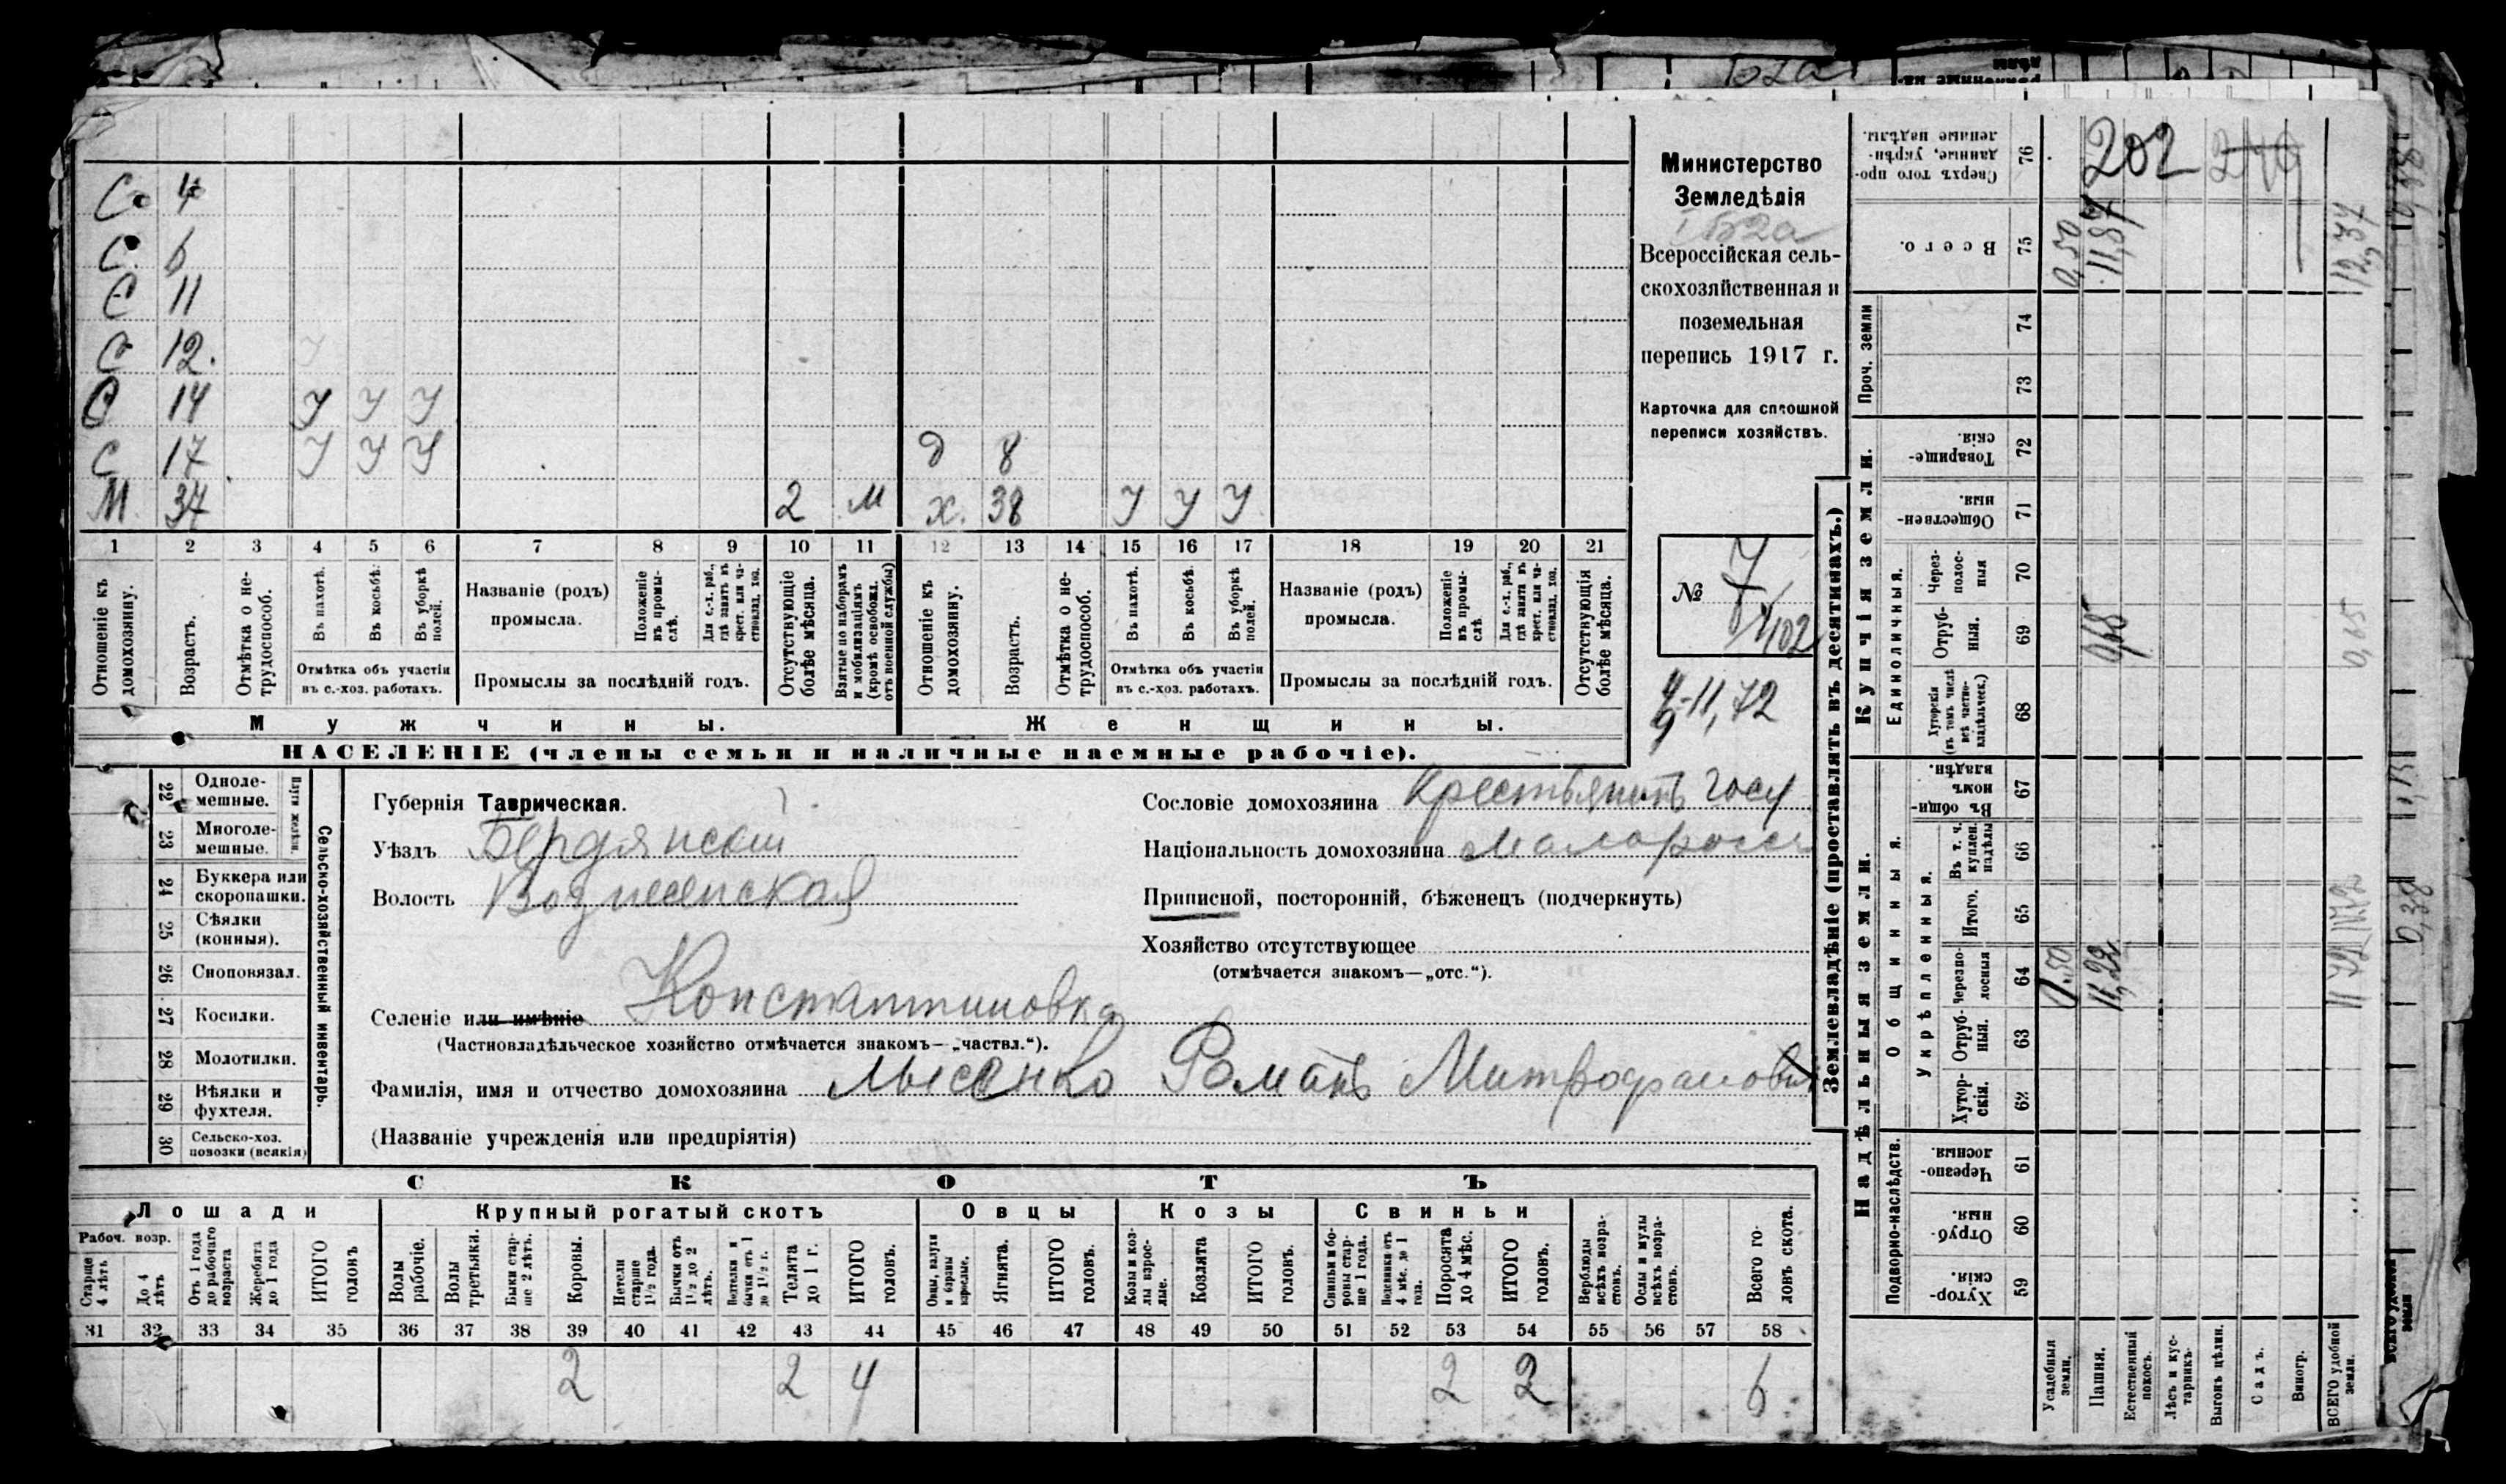 С. 4
С. 6
С 11
С 12.
С 14 У У У
С 17 У У У д 8
М. 37 2 М х. 38 У У У
1 2 3 4 5 6 7 8 9 10 11 12 13 14 15 16 17 18 19 20 21
Отношеніе къ домохозяину.
Возрастъ.
Отмѣтка о не-трудоспособ.
Въ пахотѣ.
Въ косьбѣ.
Въ уборкѣ полей.
Отмѣтка объ участіи
въ с.-хоз. работахъ.
Названіе (родъ)
промысла.
Положеніе въ промы-слѣ.
Для с.-х. раб., гдѣ занятъ въ крест. или ча-стновлад. хоз.
Промыслы за послѣдній годъ.
Отсутствующіе болѣе мѣсяца.
Взятые по наборамъ и мобилизаціямъ (кромѣ освобожд. отъ военной службы)
Отношеніе къ домохозяину.
Возрастъ.
Отмѣтка о не-трудоспособ.
Въ пахотѣ.
Въ косьбѣ.
Въ уборкѣ полей.
Отмѣтка объ участіи
въ с.-хоз. работахъ.
Названіе (родъ)
промысла.
Положеніе въ промы-слѣ.
Для с.-х. раб., гдѣ занята въ крест. или ча-стновлад. хоз.
Промыслы за послѣдній годъ.
Отсутствующія болѣе мѣсяца.
Мужчины.
Женщины.
НАСЕЛЕНІЕ (члены семьи и наличные наемные рабочіе).
Министерство
Земледѣлія
Всероссійская сель-
скохозяйственная и
поземельная
перепись 1917 г.
Карточка для сплошной
переписи хозяйствъ.
№ 7
7/102
11,72
22 Одноле-
мешные.
23 Многоле-
мешные.
Плуги желѣзн.
24 Буккера или
скоропашки.
25 Сѣялки
(конныя).
26 Сноповязал.
27 Косилки.
28 Молотилки.
29 Вѣялки и
фухтеля.
30 Сельско-хоз.
повозки (всякія)
Сельско-хозяйственный инвентарь.
Губернія Таврическая.
Уѣздъ Бердянскій
Волость Вознесенская
Селеніе или имѣніе Константиновка
(Частновладѣльческое хозяйство отмѣчается знакомъ—„частвл.“).
Фамилія, имя и отчество домохозяина Лысенко Романъ Митрофанович
(Названіе учрежденія или предпріятія)
Сословіе домохозяина Крестьянинъ Госу
Національность домохозяина Малоросс
Приписной, посторонній, бѣженецъ (подчеркнуть)
Хозяйство отсутствующее
(отмѣчается знакомъ—„отс.“).
СКОТЪ
Лошади
Крупный рогатый скотъ
Овцы
Козы
Свиньи
Рабоч. возр.
Старше 4 лѣтъ
До 4 лѣтъ
Отъ 1 года до рабочаго возраста
Жеребята до 1 года
ИТОГО головъ
Волы рабочіе.
Волы третьяки.
Быки стар-ше 2 лѣтъ.
Коровы.
Нетели старше 1½ года.
Бычки отъ 1½ до 2 лѣтъ.
Подтелки и бычки отъ 1 до 1½ г.
Телята до 1 г.
ИТОГО головъ.
Овцы, валухи и бараны взрослые.
Ягнята.
ИТОГО головъ.
Козы и коз-лы взрос-лые.
Козлята
ИТОГО головъ.
Свиньи и бо-ровы стар-ше 1 года.
Подсвинки отъ 4 мѣс. до 1 года.
Поросята до 4 мѣс.
ИТОГО головъ.
Верблюды всѣхъ возра-стовъ.
Ослы и мулы всѣхъ возра-стовъ.
Всего го-ловъ скота.
31 32 33 34 35 36 37 38 39 40 41 42 43 44 45 46 47 48 49 50 51 52 53 54 55 56 57 58
2 2 4 2 2 6
Землевладѣніе (проставлять въ десятинахъ.)
Надѣльныя земли.
Купчія земли.
Проч. земли
Подворно-наслѣдств.
Общинныя.
Укрѣпленныя.
Единоличныя.
Сверхъ того про-данные, укрѣп-ленные надѣлы.
76
202
Всего.
75
0,50
11,87
12,37
74
73
Товарище-скія.
72
Обществен-ныя.
71
Через-полос-ныя
70
Отруб-ныя.
69
0,65
0,65
Хуторскія (въ томъ числѣ всѣ частно-владѣльческ.)
68
Въ общи-номъ владѣн.
67
Въ т. ч. куплен. надѣлы
66
Итого.
65
Черезпо-лосныя
64
0,50
11,22
11,72
Отруб-ныя.
63
Хутор-скія.
62
Черезпо-лосныя.
61
Отруб-ныя.
60
Хутор-скія.
59
Усадебныя земли.
Пашня.
Естественный покосъ.
Лѣсъ и кус-тарникъ.
Выгонъ цѣлин.
Садъ.
Виногр.
ВСЕГО удобной земли.